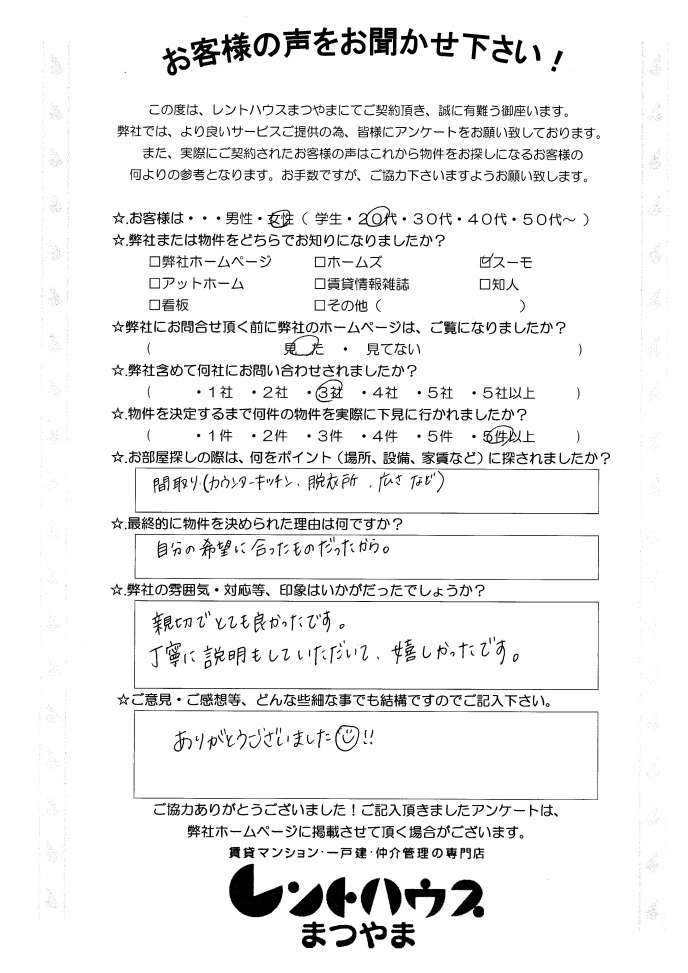 お客様の声をお聞かせ下さい！
この度は、レントハウスまつやまにてご契約頂き、誠に有難う御座います。
弊社では、より良いサービスご提供の為、皆様にアンケートをお願い致しております。
また、実際にご契約されたお客様の声はこれから物件をお探しになるお客様の
何よりの参考となります。お手数ですが、ご協力下さいますようお願い致します。
☆.お客様は・・・男性・女性（ 学生・２０代・３０代・４０代・５０代～ ）
☆.弊社または物件をどちらでお知りになりましたか？
□弊社ホームページ　□ホームズ　☑スーモ
□アットホーム　□賃貸情報雑誌　□知人
□看板　□その他（　　　）
☆弊社にお問合せ頂く前に弊社のホームページは、ご覧になりましたか？
（　見た ・ 見てない　）
☆.弊社含めて何社にお問い合わせされましたか？
（　・１社　・２社　・３社　・４社　・５社　・５社以上　）
☆.物件を決定するまで何件の物件を実際に下見に行かれましたか？
（　・１件　・２件　・３件　・４件　・５件　・５件以上　）
☆.お部屋探しの際は、何をポイント（場所、設備、家賃など）に探されましたか？
間取り（カウンターキッチン、脱衣所、広さ など）
☆.最終的に物件を決められた理由は何ですか？
自分の希望に合ったものだったから。
☆.弊社の雰囲気・対応等、印象はいかがだったでしょうか？
親切でとても良かったです。
丁寧に説明もしていただいて、嬉しかったです。
☆ご意見・ご感想等、どんな些細な事でも結構ですのでご記入下さい。
ありがとうございました☺!!
ご協力ありがとうございました！ご記入頂きましたアンケートは、
弊社ホームページに掲載させて頂く場合がございます。
賃貸マンション・一戸建・仲介管理の専門店
レントハウス
まつやま